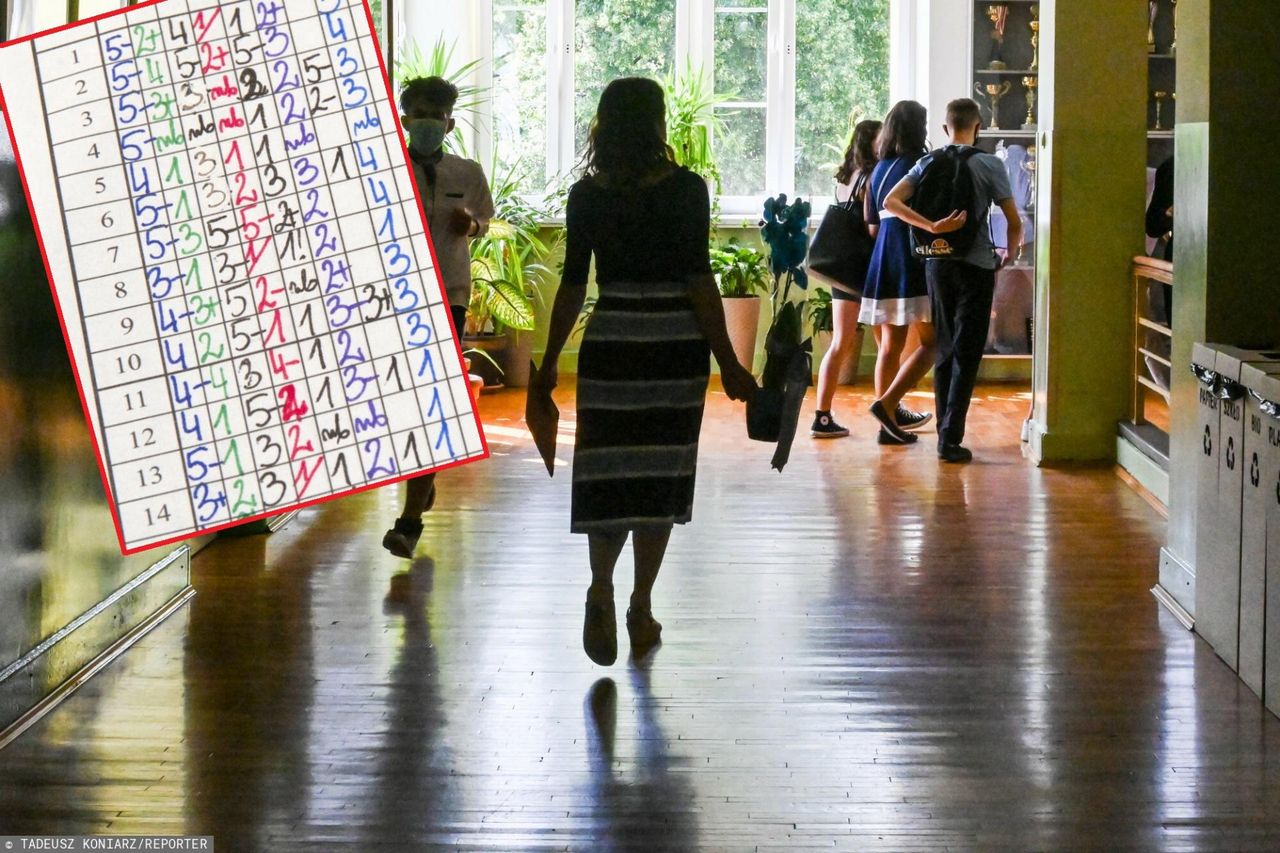 1 5- 2+ 4 1 1 2+
2 5- 4 5 2+ 5- 3 4
3 5- 3+ 3 nb 2 2 5- 3
4 5- nb nb nb 1 2 2- 3
5 4 1 3 1 1 nb nb
6 5- 1 3. 2 3 3 1 4
7 5- 3 5- 5- 2+ 2 4
8 3- 1 3- 1 1! 2 1
9 4- 3+ 5 2- nb 2+ 3
10 4 2 5- 1 1 3- 3+ 3
11 4- 4 3 4- 1 2 3
12 4 1 5- 2 1 3- 1 1
13 5- 1 3 2 nb nb 1
14 3+ 2 3 1 1 2 1 1
ellesse
PAPIER SZKŁO BIO
© TADEUSZ KONIARZ/REPORTER